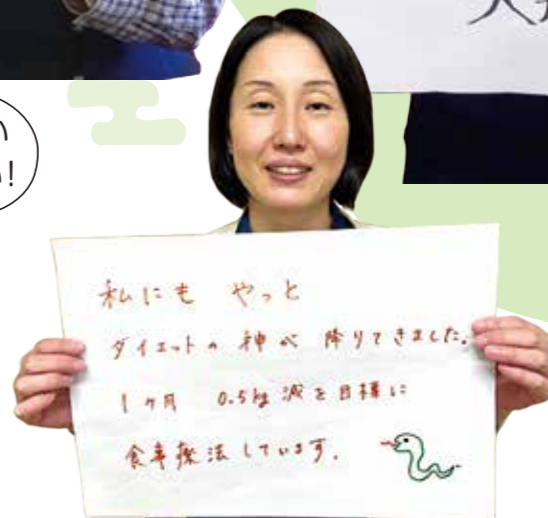 い
!
私にも やっと
ダイエットの神が 降りてきました。
1ヶ月 0.5kg減を目標に
食事療法しています。